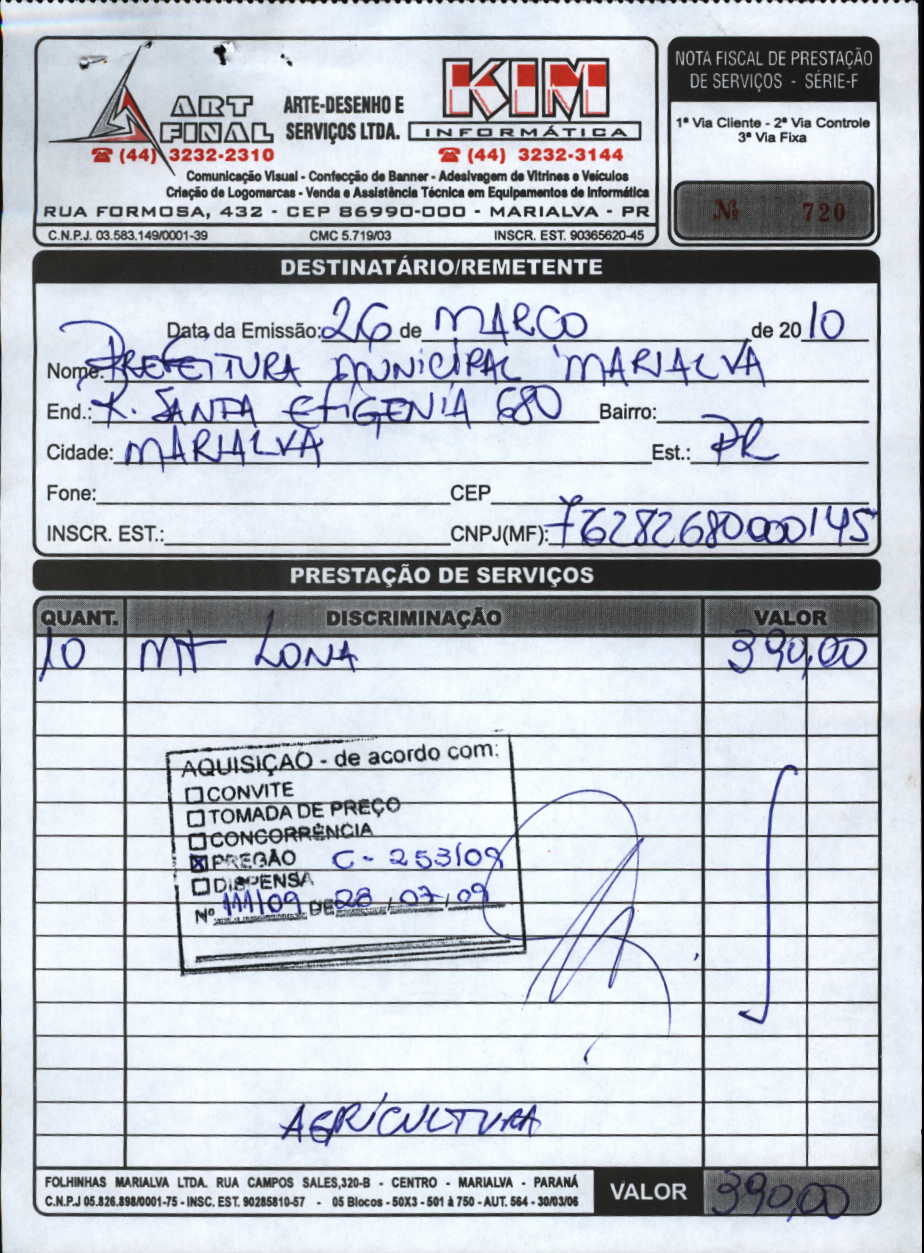 ART FINAL
ARTE-DESENHO E SERVIÇOS LTDA.
KIM INFORMÁTICA
(44) 3232-2310
(44) 3232-3144
Comunicação Visual - Confecção de Banner - Adesivagem de Vitrines e Veículos
Criação de Logomarcas - Venda e Assistência Técnica em Equipamentos de Informática
RUA FORMOSA, 432 - CEP 86990-000 - MARIALVA - PR
C.N.P.J. 03.583.149/0001-39 CMC 5.719/03 INSCR. EST. 90365620-45
NOTA FISCAL DE PRESTAÇÃO
DE SERVIÇOS - SÉRIE-F
1ª Via Cliente - 2ª Via Controle
3ª Via Fixa
Nº 720
DESTINATÁRIO/REMETENTE
Data da Emissão: 26 de MARCO de 2010
Nome: PREFEITURA MUNICIPAL MARIALVA
End.: R. SANTA EFIGENIA 680 Bairro:
Cidade: MARIALVA Est.: PR
Fone: CEP
INSCR. EST.: CNPJ(MF): 76282680000145
PRESTAÇÃO DE SERVIÇOS
QUANT. DISCRIMINAÇÃO VALOR
10 MT LONA 390,00
AQUISIÇÃO - de acordo com:
CONVITE
TOMADA DE PREÇO
CONCORRÊNCIA
PREGÃO C - 253/09
DISPENSA
Nº 111/09 DE 28/07/09
AGRICULTURA
FOLHINHAS MARIALVA LTDA. RUA CAMPOS SALES,320-B - CENTRO - MARIALVA - PARANÁ
C.N.P.J 05.826.898/0001-75 - INSC. EST. 90285810-57 - 05 Blocos - 50X3 - 501 à 750 - AUT. 564 - 30/03/06
VALOR 390,00